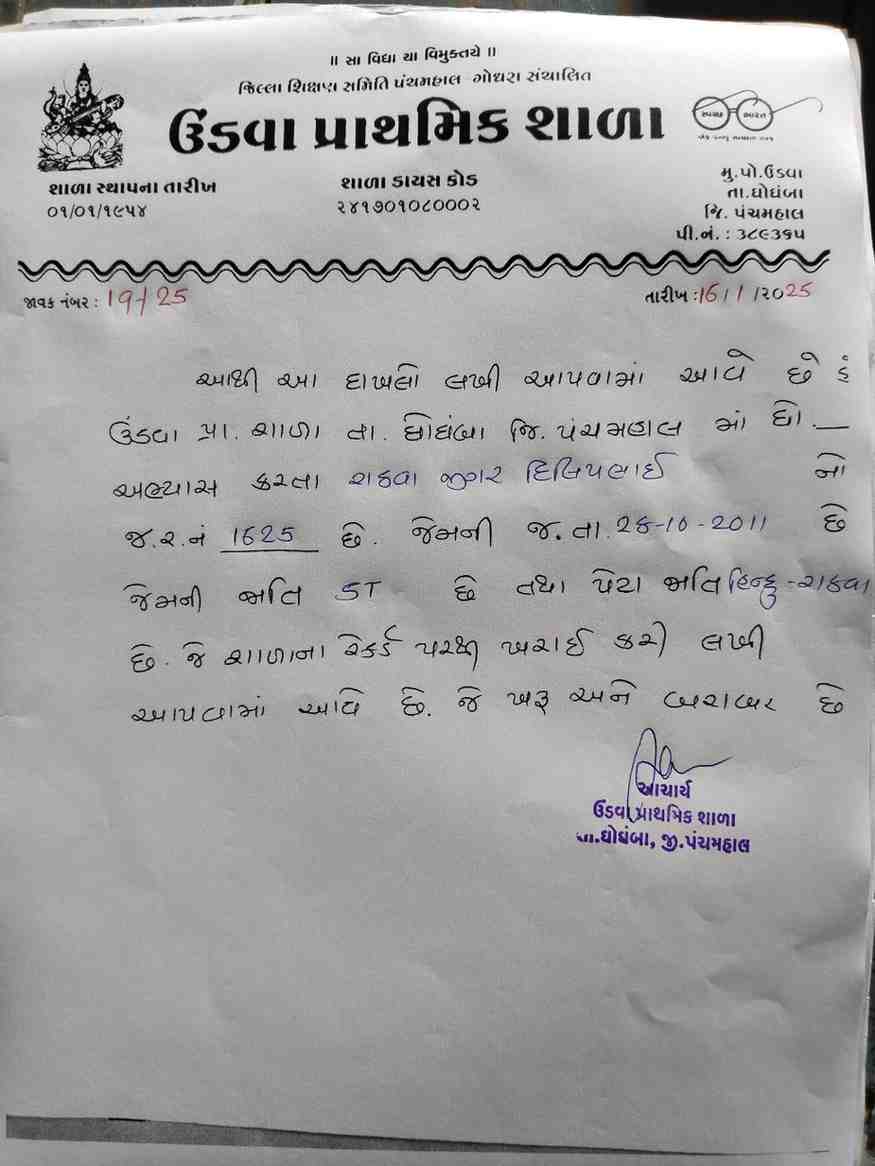 ॥ સા વિદ્યા યા વિમુક્તયે ॥
જિલ્લા શિક્ષણ સમિતિ પંચમહાલ - ગોધરા સંચાલિત
ઉંડવા પ્રાથમિક શાળા
સ્વચ્છ ભારત
શાળા સ્થાપના તારીખ
૦૧/૦૧/૧૯૫૪
શાળા ડાયસ કોડ
૨૪૧૭૦૧૦૮૦૦૦૨
મુ.પો.ઉંડવા
તા.ઘોઘંબા
જિ. પંચમહાલ
પી.નં. : ૩૮૯૩૬૫
જાવક નંબર : 19/25
તારીખ : 16/1/૨૦25
આથી આ દાખલો લખી આપવામાં આવે છે કે
ઉંડવા પ્રા. શાળા તા. ઘોઘંબા જિ. પંચમહાલ માં ધો.
અભ્યાસ કરતા રાઠવા જીગર દિલિપભાઈ નો
જ.ર.નં 1625 છે. જેમની જ.તા. 28-10-2011 છે
જેમની જાતિ ST છે તથા પેટા જાતિ હિન્દુ-રાઠવા
છે. જે શાળાના રેકર્ડ પરથી ખરાઈ કરી લખી
આપવામાં આવે છે. જે ખરૂ અને બરાબર છે
આચાર્ય
ઉંડવા પ્રાથમિક શાળા
તા.ઘોઘંબા, જી.પંચમહાલ